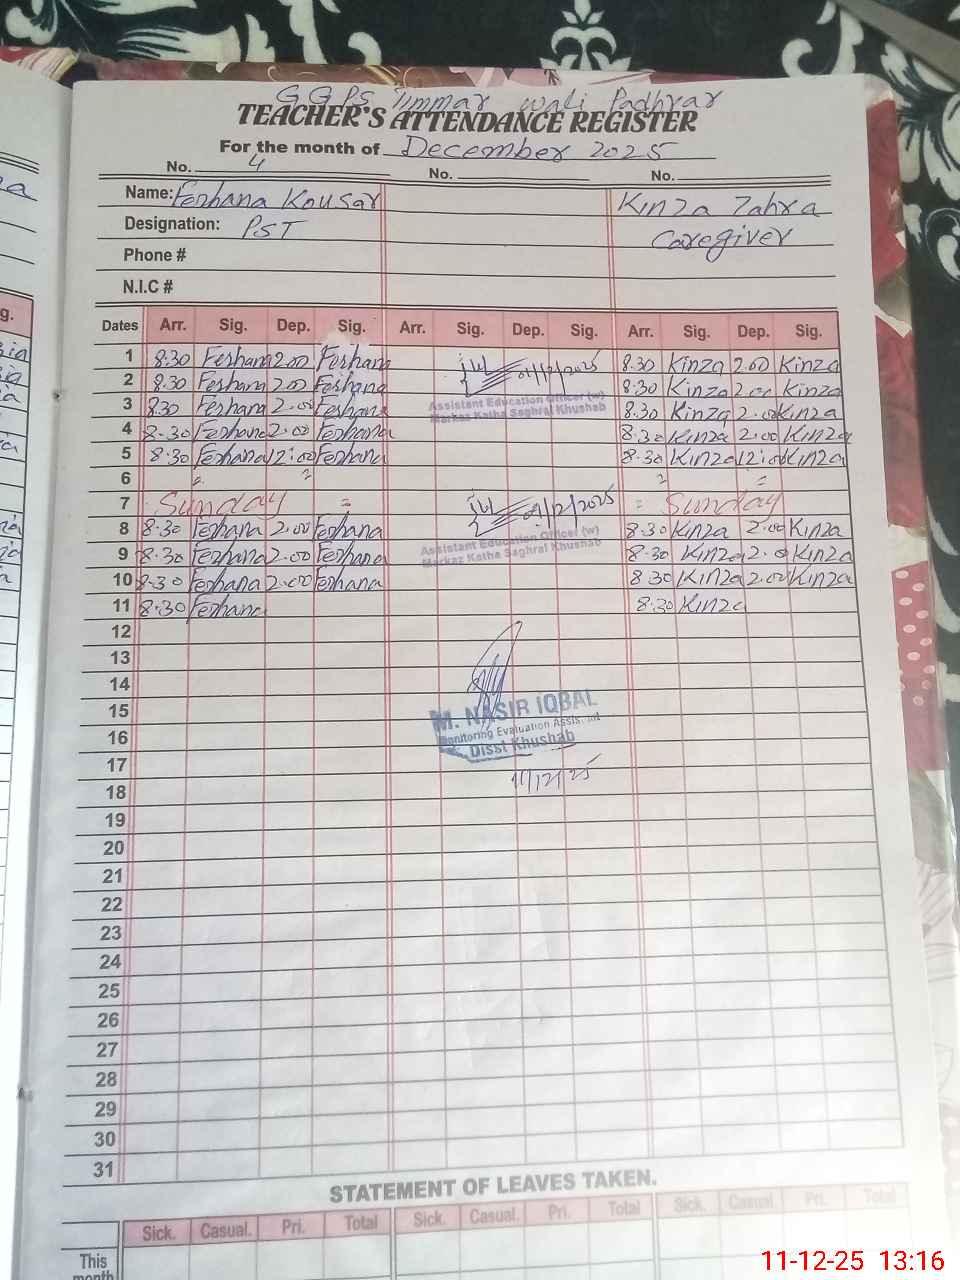 GGPS Timmar wali Padhrar
TEACHER'S ATTENDANCE REGISTER
For the month of December 2025
No. 4 No. No.
Name: Ferhana Kousar Kinza Zahra
Designation: PST Caregiver
Phone #
N.I.C #
Dates Arr. Sig. Dep. Sig. Arr. Sig. Dep. Sig. Arr. Sig. Dep. Sig.
1 8.30 Ferhana 2.00 Ferhana 01/12/2025 8.30 Kinza 2.00 Kinza
2 8.30 Ferhana 2.00 Ferhana 8.30 Kinza 2.00 Kinza
Assistant Education Officer (w)
Markaz Katha Saghral Khushab
3 8.30 Ferhana 2.00 Ferhana 8.30 Kinza 2.00 Kinza
4 8.30 Ferhana 2.00 Ferhana 8.30 Kinza 2.00 Kinza
5 8.30 Ferhana 12:00 Ferhana 8.30 Kinza 12:00 Kinza
6
7 Sunday = /12/2025 = Sunday
8 8.30 Ferhana 2.00 Ferhana 8.30 Kinza 2.00 Kinza
Assistant Education Officer (w)
Markaz Katha Saghral Khushab
9 8.30 Ferhana 2.00 Ferhana 8.30 Kinza 2.00 Kinza
10 8.30 Ferhana 2.00 Ferhana 8.30 Kinza 2.00 Kinza
11 8.30 Ferhana 8.30 Kinza
12
13
14
15
M. NASIR IQBAL
16
Monitoring Evaluation Assistant
Disst Khushab
17
11/12/25
18
19
20
21
22
23
24
25
26
27
28
29
30
31
STATEMENT OF LEAVES TAKEN.
Sick. Casual. Pri. Total Sick. Casual. Pri. Total Sick. Casual. Pri. Total
This
month
11-12-25 13:16